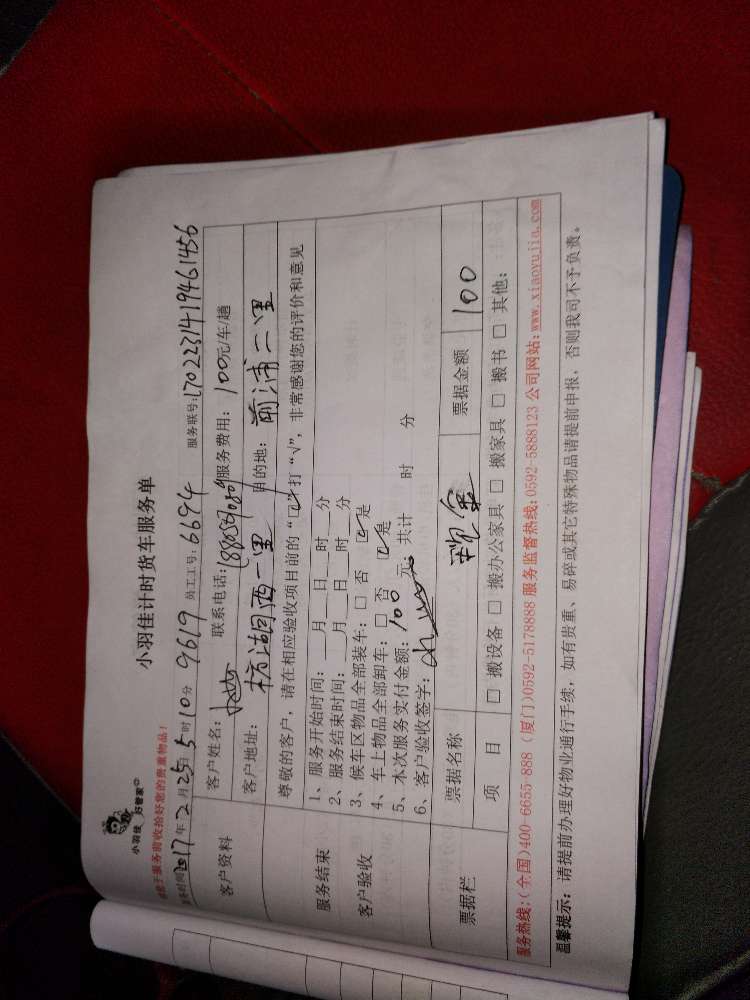 小羽佳 好管家
小羽佳计时货车服务单
请您于服务前收拾好您的贵重物品!
2017年2月25日5时10分 9619 员工工号:6694 服务联号:170223141946145б
客户资料
客户姓名: 联系电话: 服务费用:100元/车/趟
客户地址: 湖西一里 目的地:前浦二里
服务结束
客户验收
尊敬的客户,请在相应验收项目前的“□”打“√”,非常感谢您的评价和意见
1、服务开始时间:___月___日___时___分
2、服务结束时间:___月___日___时___分
3、候车区物品全部装车:□ 否 ☑是
4、车上物品全部卸车:□ 否 ☑是
5、本次服务实付金额:100元;共计 时 分
6、客户验收签字:
票据栏
票据名称 票据金额 100
项 目 □ 搬设备 □ 搬办公家具 □ 搬家具 □ 搬书 □ 其他:
服务热线:(全国)400-6655-888 (厦门)0592-5178888 服务监督热线:0592-5888123 公司网站:www.xiaoyujia.com
温馨提示:请提前办理好物业通行手续,如有贵重、易碎或其它特殊物品请提前申报,否则我司不予负责。